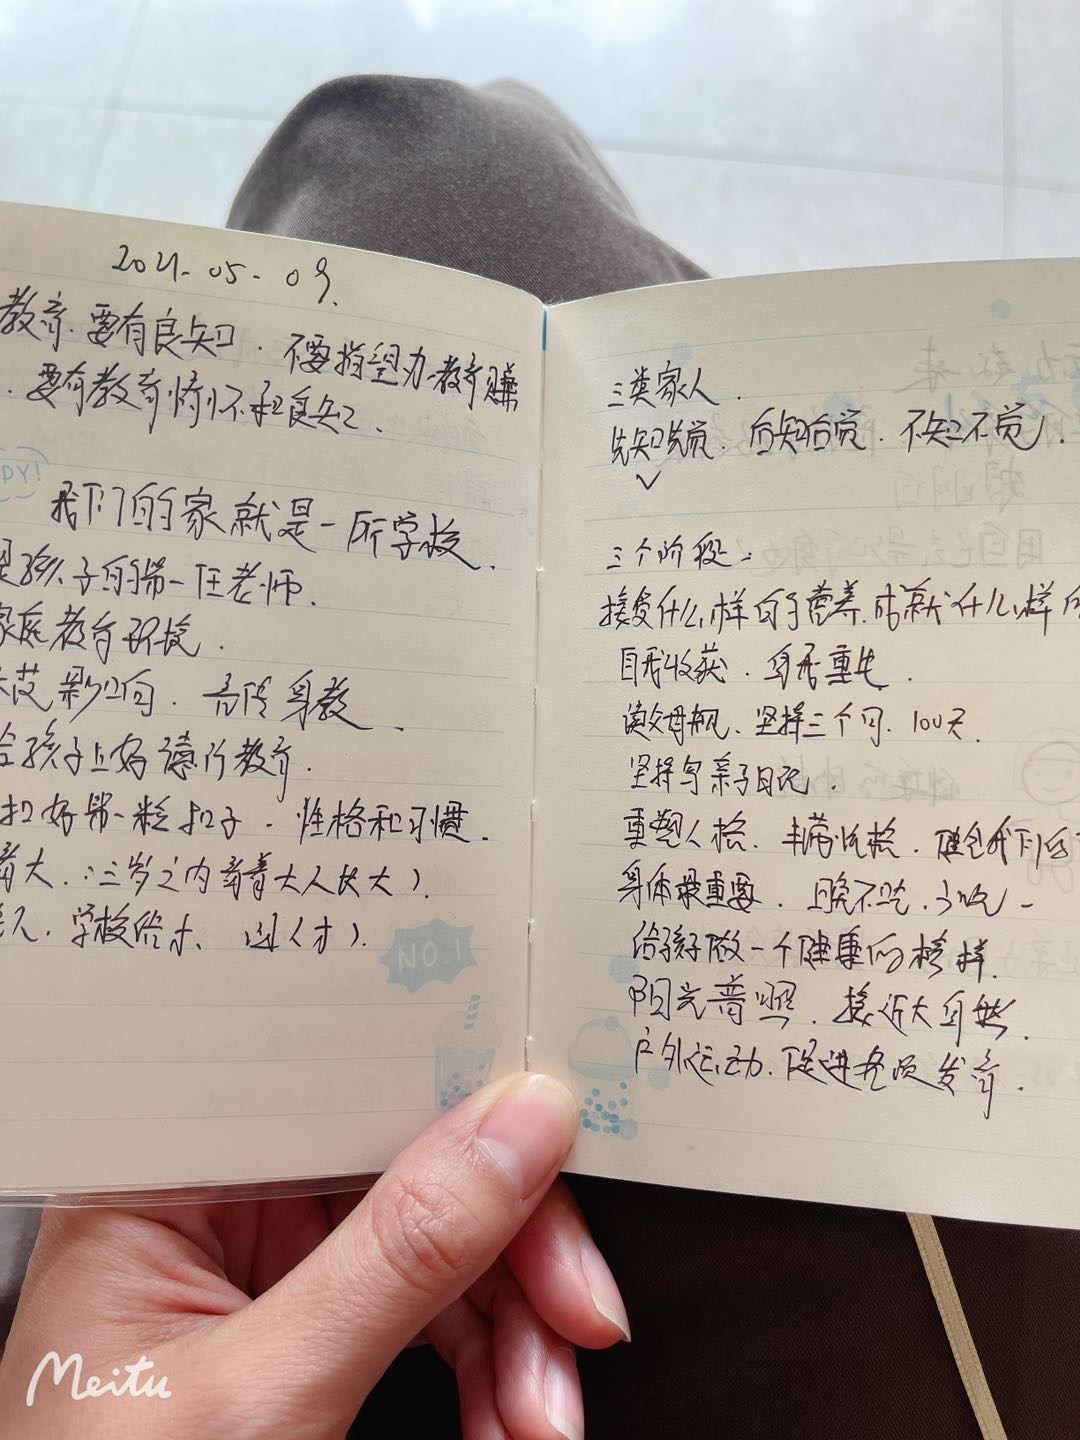 2021-05-09.
教育.要有良知.不要指望办教育赚
.要有教育情怀和良知.
我们的家就是一所学校.
是孩子的第一任老师.
家庭教育环境.
影响.言传身教.
给孩子上好德行教育.
扣好第一粒扣子.性格和习惯.
大.(三岁之内 大人伙大)
人.学校给才、(才).
NO.1
三类家人.
先知先觉.后知后觉.不知不觉.
三个阶段:
接受什么样的营养.成就什么样的
自我收获.自我重生.
读父母规.坚持三个月.100天.
坚持写亲子日记.
重塑人格.丰满性格.
身体最重要.晚不吃.少吃
给孩子做一个健康的榜样.
阳光普照.接近大自然.
户外运动.促进各项发育.
Meitu